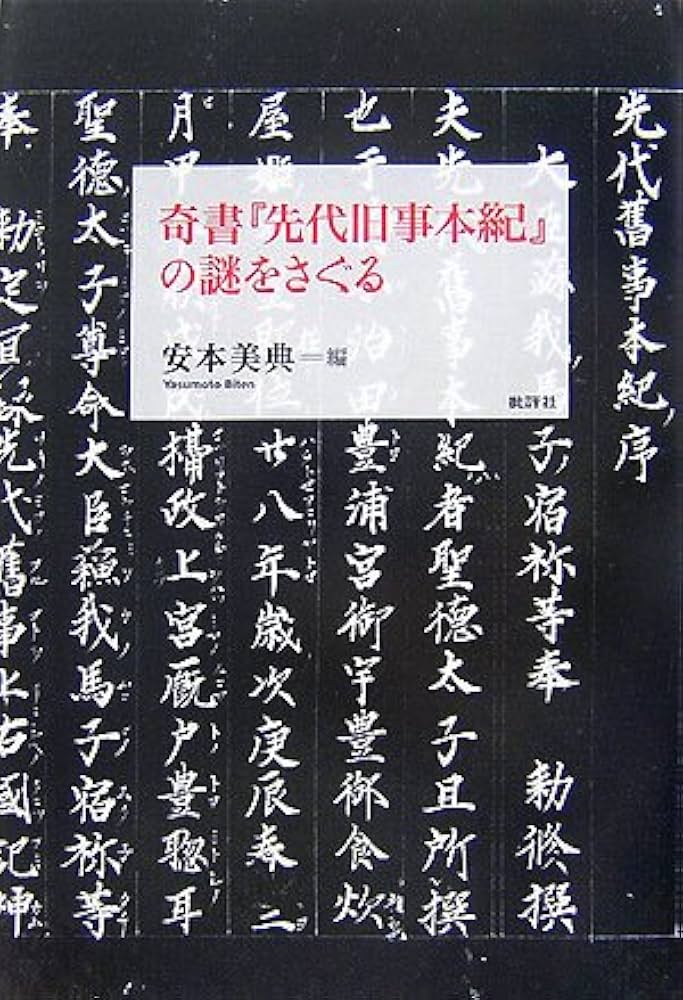 奇書『先代旧事本紀』
の謎をさぐる
安本美典＝編
Yasumoto Biten
批評社
先代舊事本紀序
大臣蘇我馬子宿祢等奉 勅修撰
夫先代舊事本紀者聖德太子且所撰
也于治田豊浦宮御宇豊御食炊
屋姫即位廿八年歳次庚辰春三
月甲戌攝政上宮厩戸豊聦耳
聖德太子尊命大臣蘓我馬子宿祢等
奉 勅定宜録先代舊事上古國記神